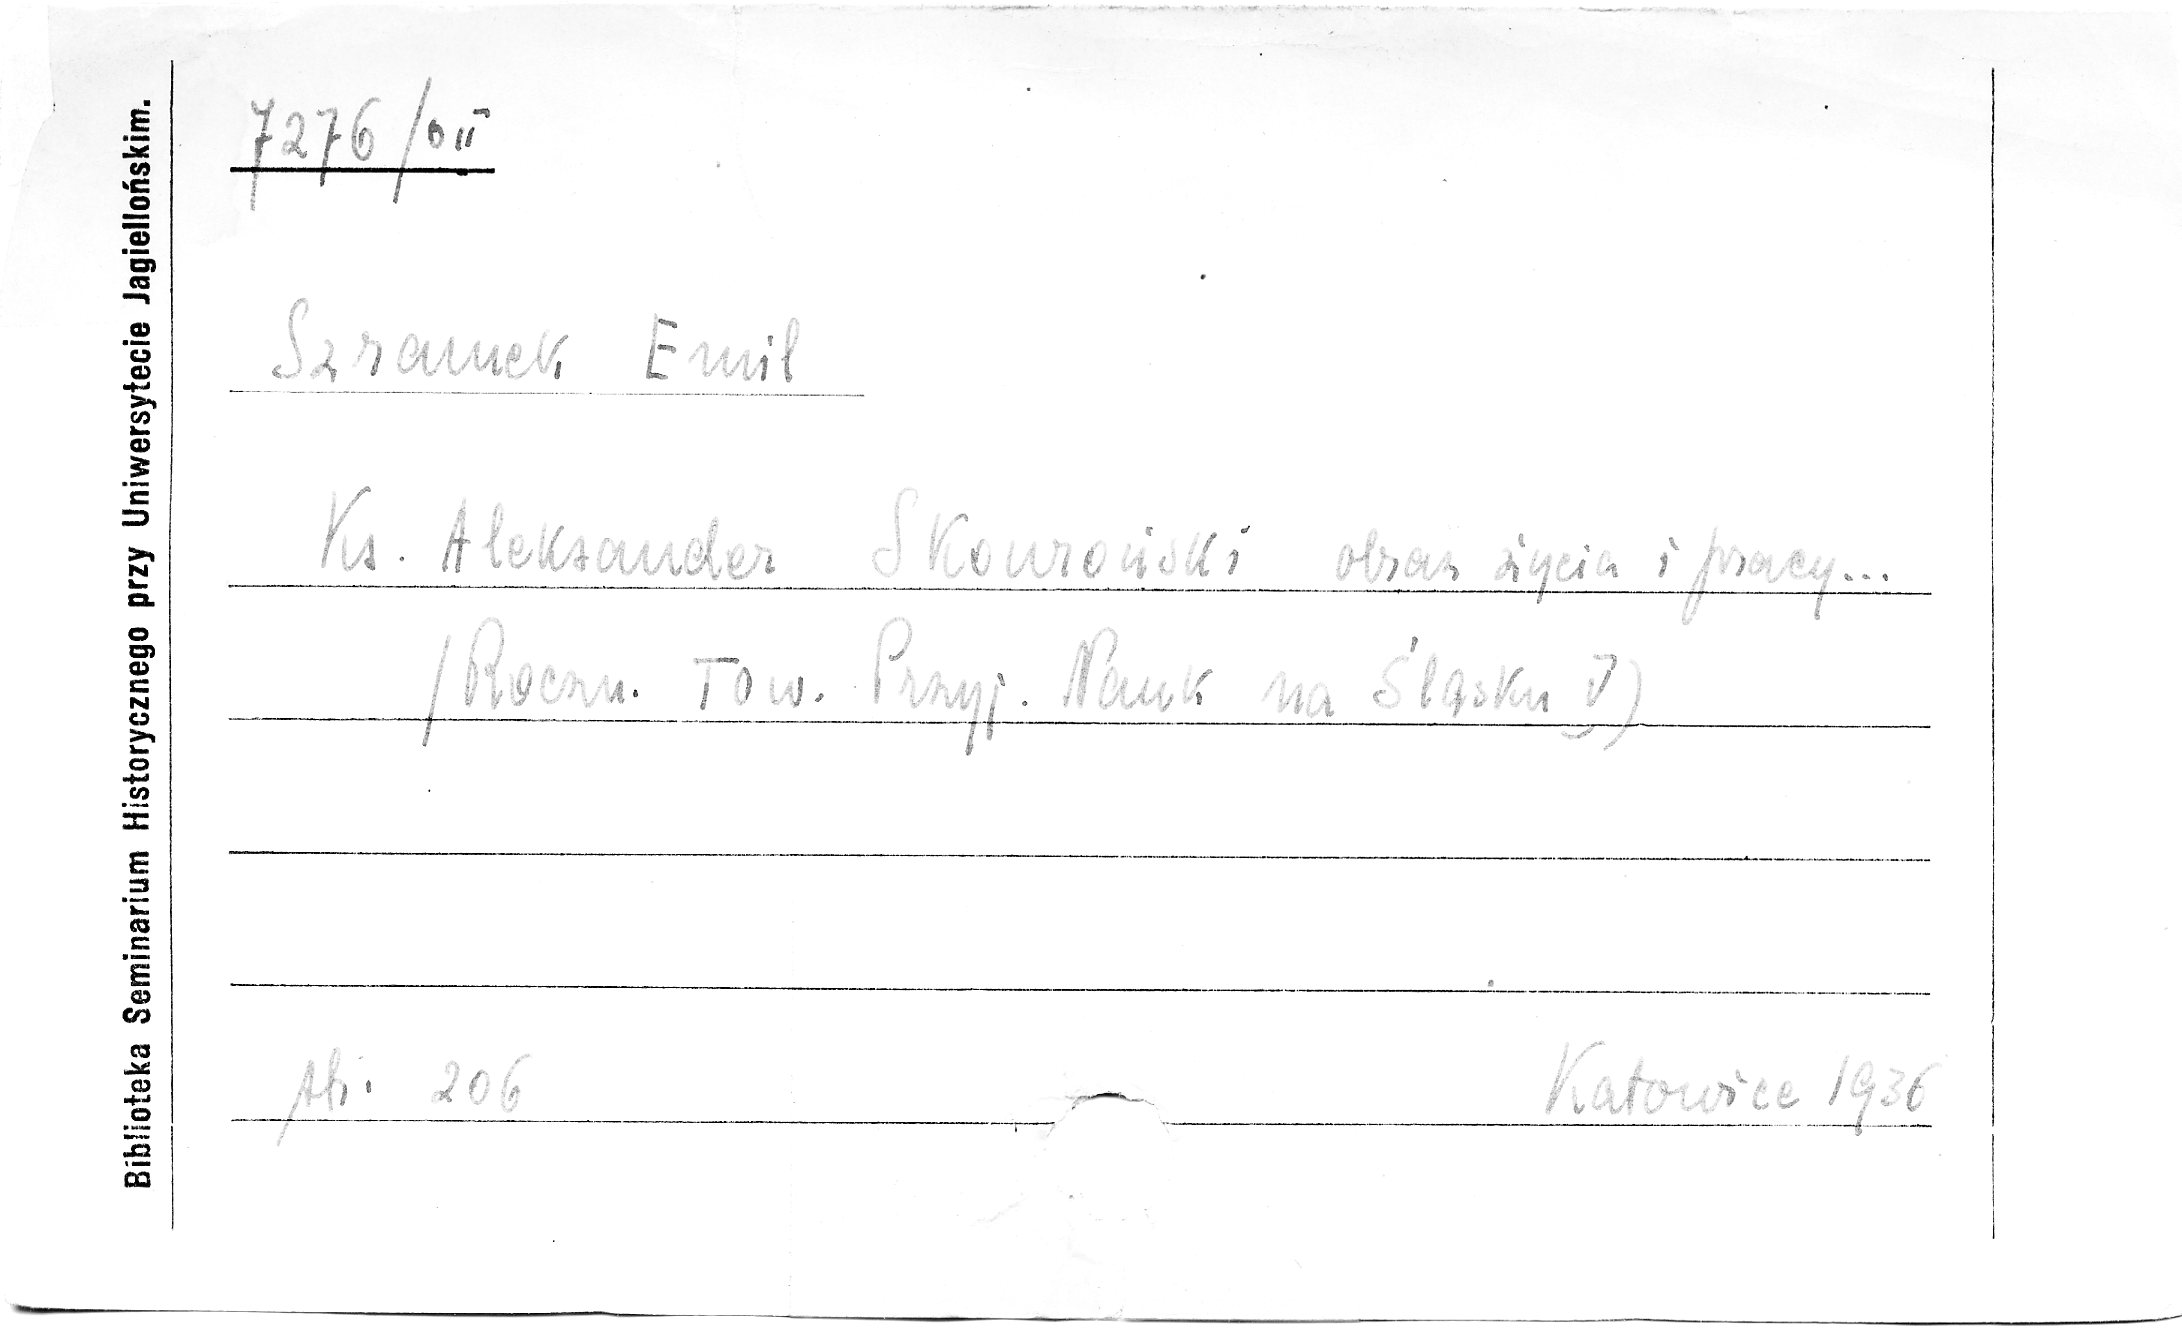 7276/
Szramek Emil
Ks. Aleksander Skowroński obraz życia i pracy...
/Roczn. Tow. Przyj. Nauk na Śląsku V)
str. 206
Katowice 1936
Biblioteka Seminarium Historycznego przy Uniwersytecie Jagiellońskim.